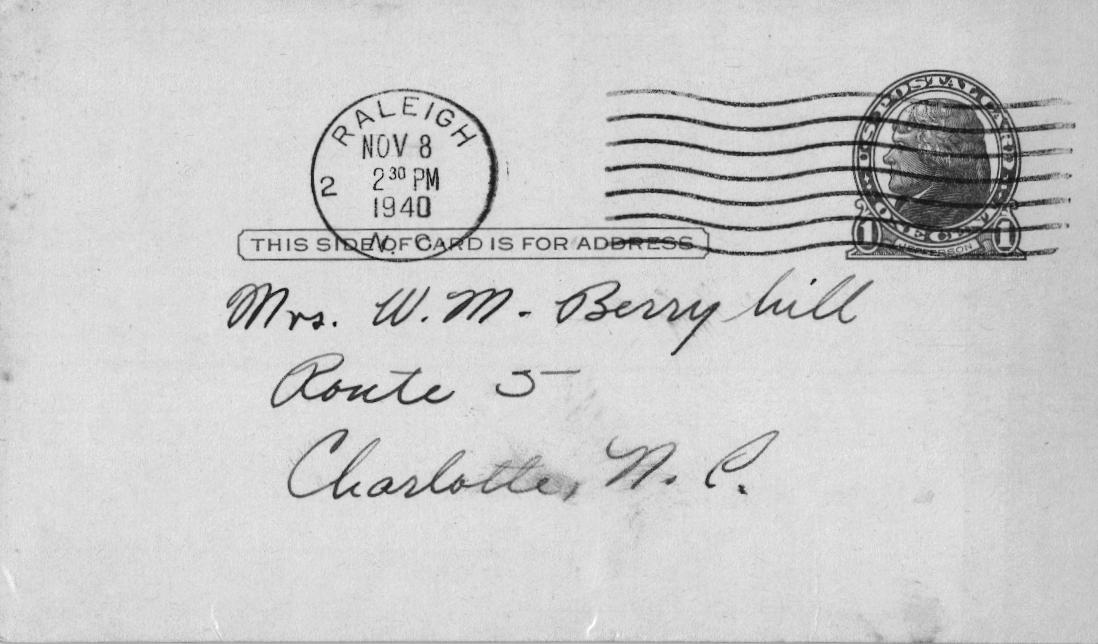 RALEIGH
NOV 8
2 2 30 PM
1940
N. C.
U.S. POSTAL CARD
ONE CENT
1 JEFFERSON 1
THIS SIDE OF CARD IS FOR ADDRESS
Mrs. W. M. Berryhill
Route 5
Charlotte, N. C.